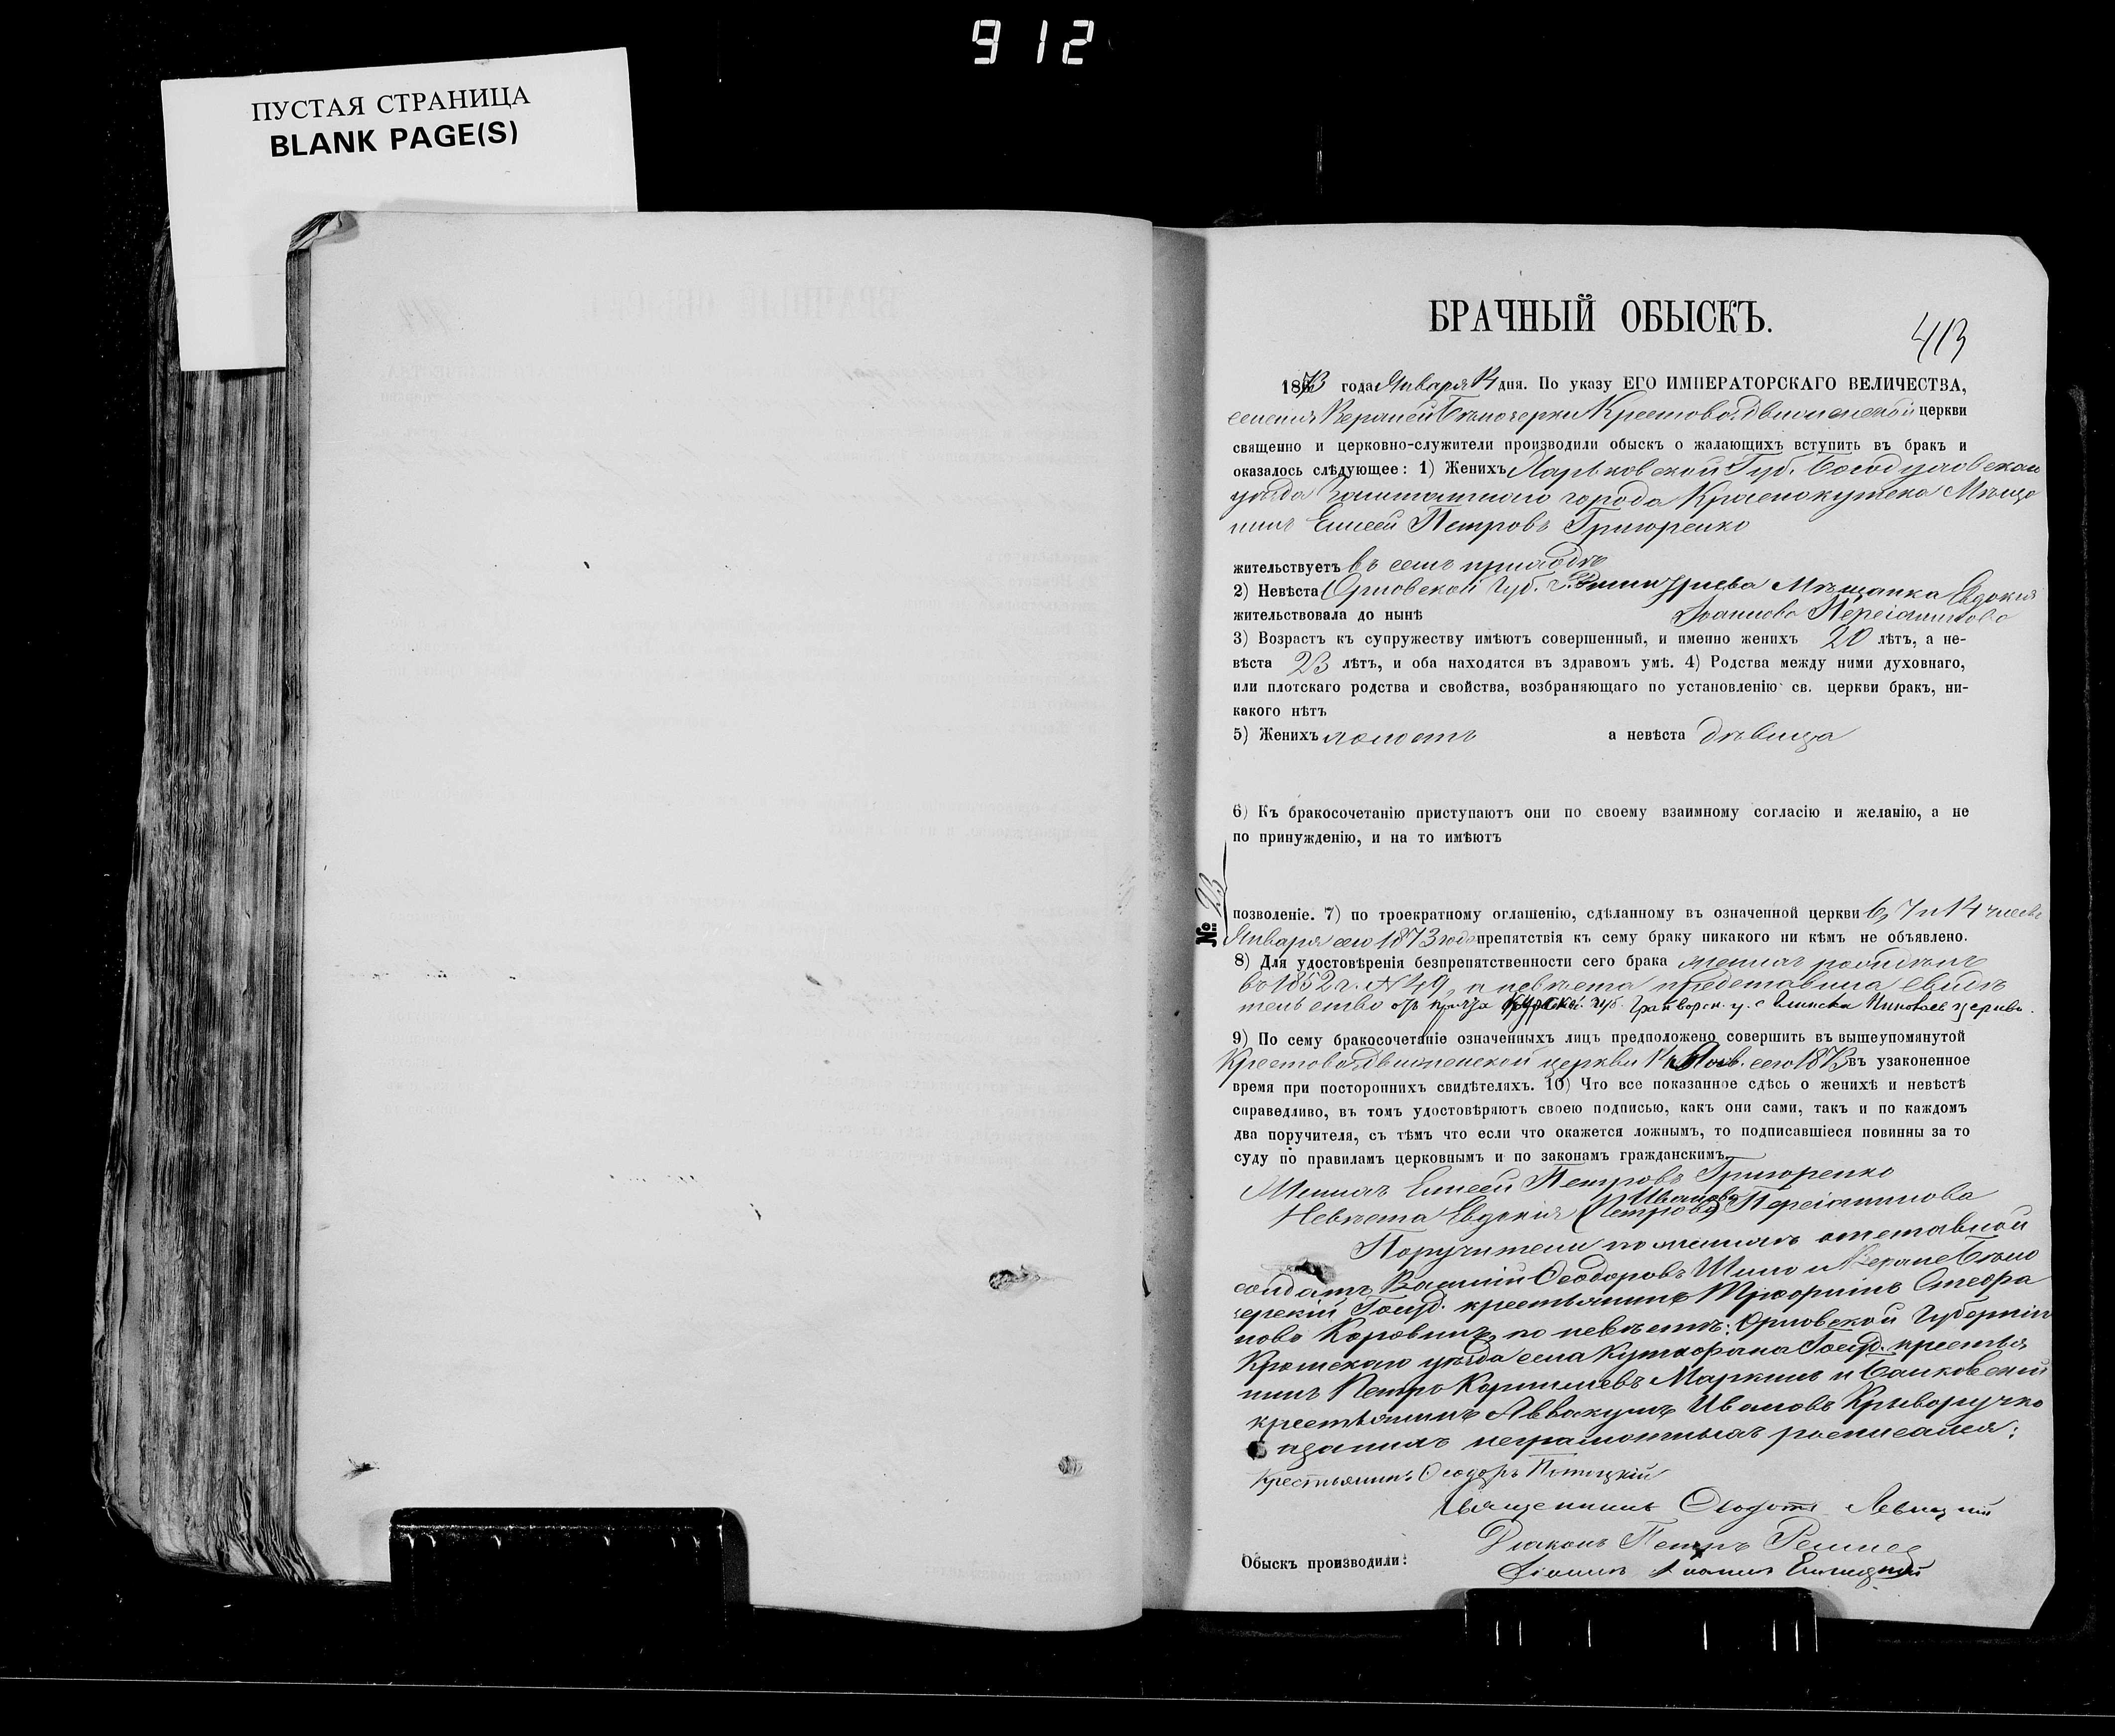 912
ПУСТАЯ СТРАНИЦА
BLANK PAGE(S)
БРАЧНЫЙ ОБЫСКЪ.
413
1873 года Января 14 дня. По указу ЕГО ИМПЕРАТОРСКАГО ВЕЛИЧЕСТВА,
селенія Верхней Крестовоздвиженской церкви
священно и церковно-служители производили обыскъ о жалающихъ вступить въ бракъ и
оказалось слѣдующее: 1) Женихъ Харьковской Губ. Богодуховскаго
уѣзда заштатнаго города Краснокутска Мѣща
нинъ Елисей Петровъ Григоренко
жительствуетъ въ семъ приходѣ
2) Невѣста Орловской Губ. г. Мѣщанка Евдокія
жительствовала до нынѣ Іоаннова
3) Возрастъ къ супружеству имѣютъ совершенный, и именно женихъ 20 лѣтъ, а не-
вѣста 23 лѣтъ, и оба находятся въ здравомъ умѣ. 4) Родства между ними духовнаго,
или плотскаго родства и свойства, возбраняющаго по установленію св. церкви бракъ, ни-
какого нѣтъ
5) Женихъ холостъ а невѣста дѣвица
6) Къ бракосочетанію приступаютъ они по своему взаимному согласію и желанію, а не
по принужденію, и на то имѣютъ
№ 23
позволеніе. 7) по троекратному оглашенію, сдѣланному въ означенной церкви 6, 7 и 14 числъ
Января сего 1873 года препятствія къ сему браку никакого ни кѣмъ не объявлено.
8) Для удостовѣренія безпрепятственности сего брака женихъ
въ 1852 г. № 49, а невѣста представила свидѣ
тельство отъ причта Курской губ. Грайворон. у. с Николаев церкви.
9) По сему бракосочетаніе означенныхъ лицъ предположено совершить въ вышеупомянутой
Крестовоздвиженской церкви 14 Янв. сего 1873 въ узаконенное
время при постороннихъ свидѣтеляхъ. 10) Что все показанное сдѣсь о женихѣ и невѣстѣ
справедливо, въ томъ удостовѣряютъ своею подписью, какъ они сами, такъ и по каждомъ
два поручителя, съ тѣмъ что если что окажется ложнымъ, то подписавшіеся повинны за то
суду по правиламъ церковнымъ и по законамъ гражданскимъ.
Женихъ Елисей Петровъ Григоренко
Иванова
Невѣста Евдокія (Петрова)
Поручители по женихѣ отставной
солдатъ Василій Ѳеодоровъ Шило и
Госуд. крестьянинъ Трофимъ Стефа
новъ Коровинъ, по невѣстѣ: Орловской Губерніи
Кромскаго уѣзда села Госуд. крестья
нинъ Петръ Корниліевъ Маркинъ и
крестьянинъ Аввакумъ Ивановъ Криворучко
а за нихъ неграмотныхъ росписался:
Крестьянинъ Ѳеодоръ Потоцкій
Священникъ Ѳеодотъ Левицкій
Діаконъ Петръ
Обыскъ производили: